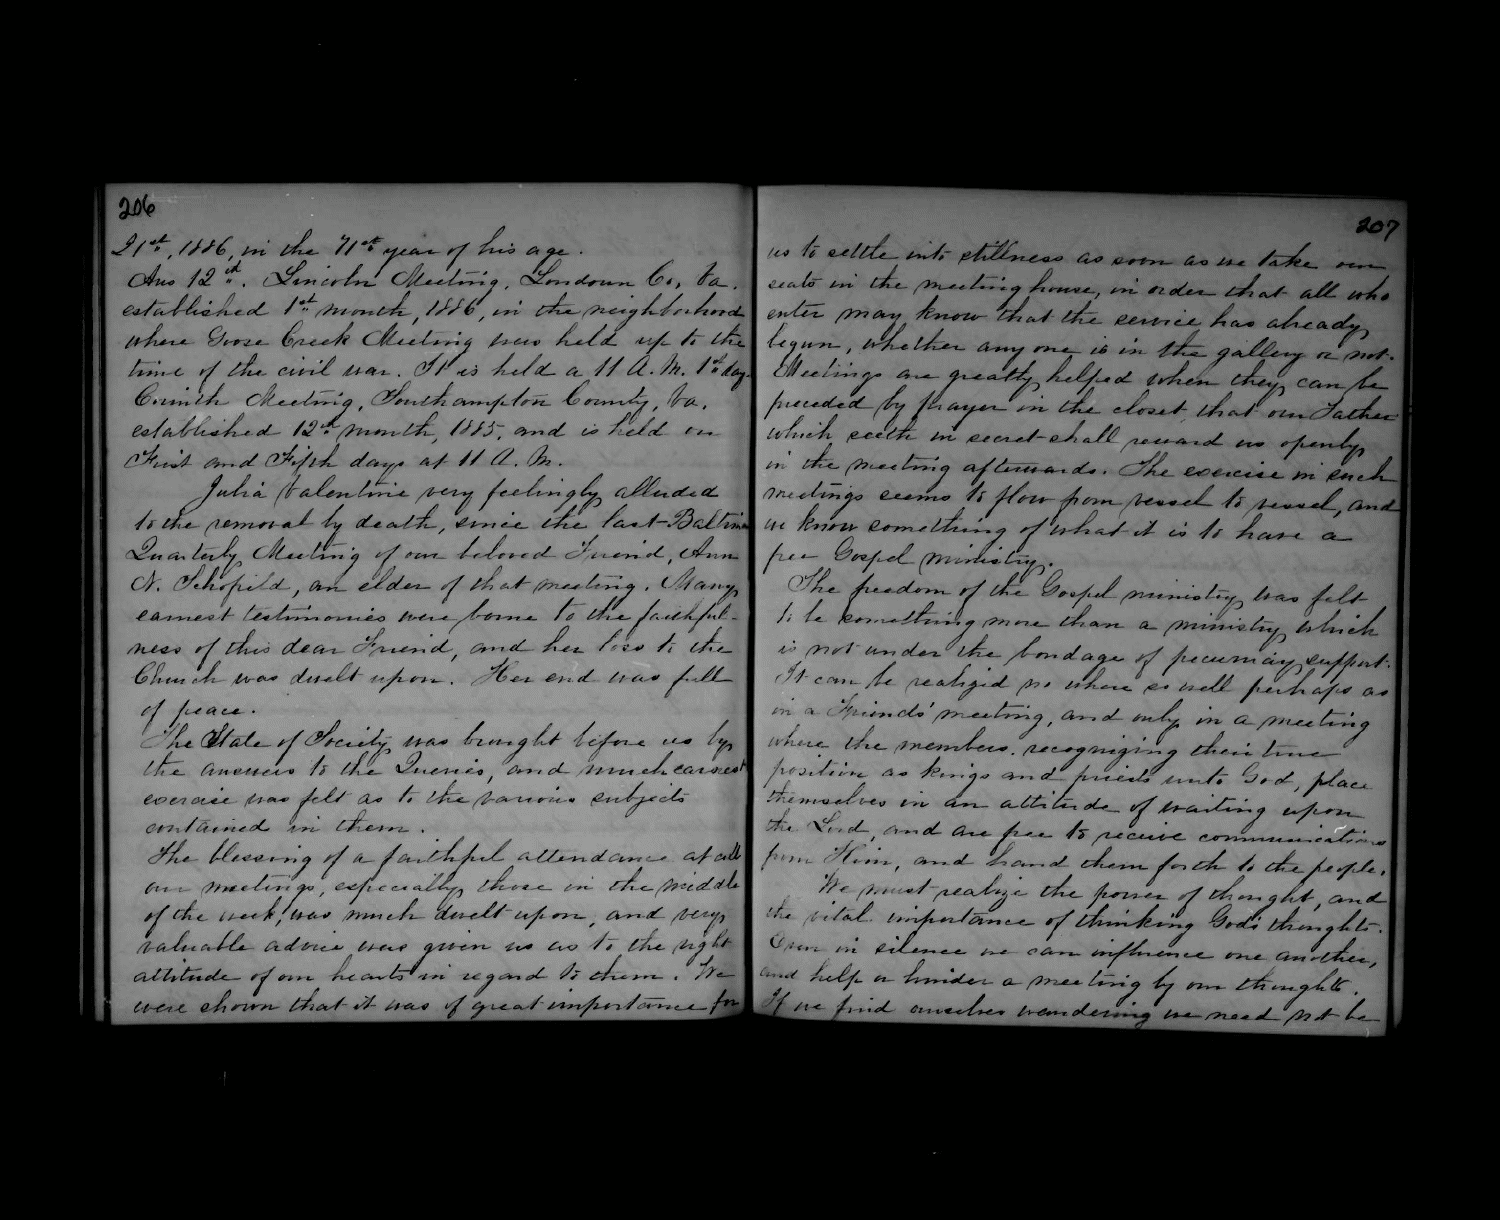 206
21st, 1886, in the 71st year of his age.
Ans 12th. Lincoln Meeting, Loudoun Co, Va.
established 1st month, 1886, in the neighborhood
where Goose Creek Meeting was held up to the
time of the civil war. It is held a 11 A. M. 1st day.
Corinth Meeting, Southampton County, Va.
established 12th month, 1885, and is held on
First and Fifth days at 11 A. M.
Julia Valentine very feelingly alluded
to the removal by death, since the last Baltimore
Quarterly Meeting of our beloved Friend, Ann
N. Schofield, an elder of that meeting. Many
earnest testimonies were borne to the faithful-
ness of this dear Friend, and her loss to the
Church was dwelt upon. Her end was full
of peace.
The State of Society was brought before us by
the answers to the Queries, and much earnest
exercise was felt as to the various subjects
contained in them.
The blessing of a faithful attendance at all
our meetings, especially those in the middle
of the week, was much dwelt upon, and very
valuable advice was given us as to the right
attitude of our hearts in regard to them. We
were shown that it was of great importance for
207
us to settle into stillness as soon as we take our
seats in the meeting house, in order that all who
enter may know that the service has already
begun, whether any one is in the gallery or not.
Meetings are greatly helped when they can be
preceded by prayer in the closet, that our Father
which seeth in secret shall reward us openly
in the meeting afterwards. The exercise in such
meetings seems to flow from vessel to vessel, and
we know something of what it is to have a
free Gospel ministry.
The freedom of the Gospel ministry was felt
to be something more than a ministry which
is not under the bondage of pecuniary support.
It can be realized no where so well perhaps as
in a Friends' meeting, and only in a meeting
where the members, recognizing their true
position as kings and priests unto God, place
themselves in an attitude of waiting upon
the Lord, and are free to receive communications
from Him, and hand them forth to the people.
We must realize the power of thought, and
the vital importance of thinking God's thoughts.
Even in silence we can influence one another,
and help or hinder a meeting by our thoughts.
If we find ourselves wandering we need not be